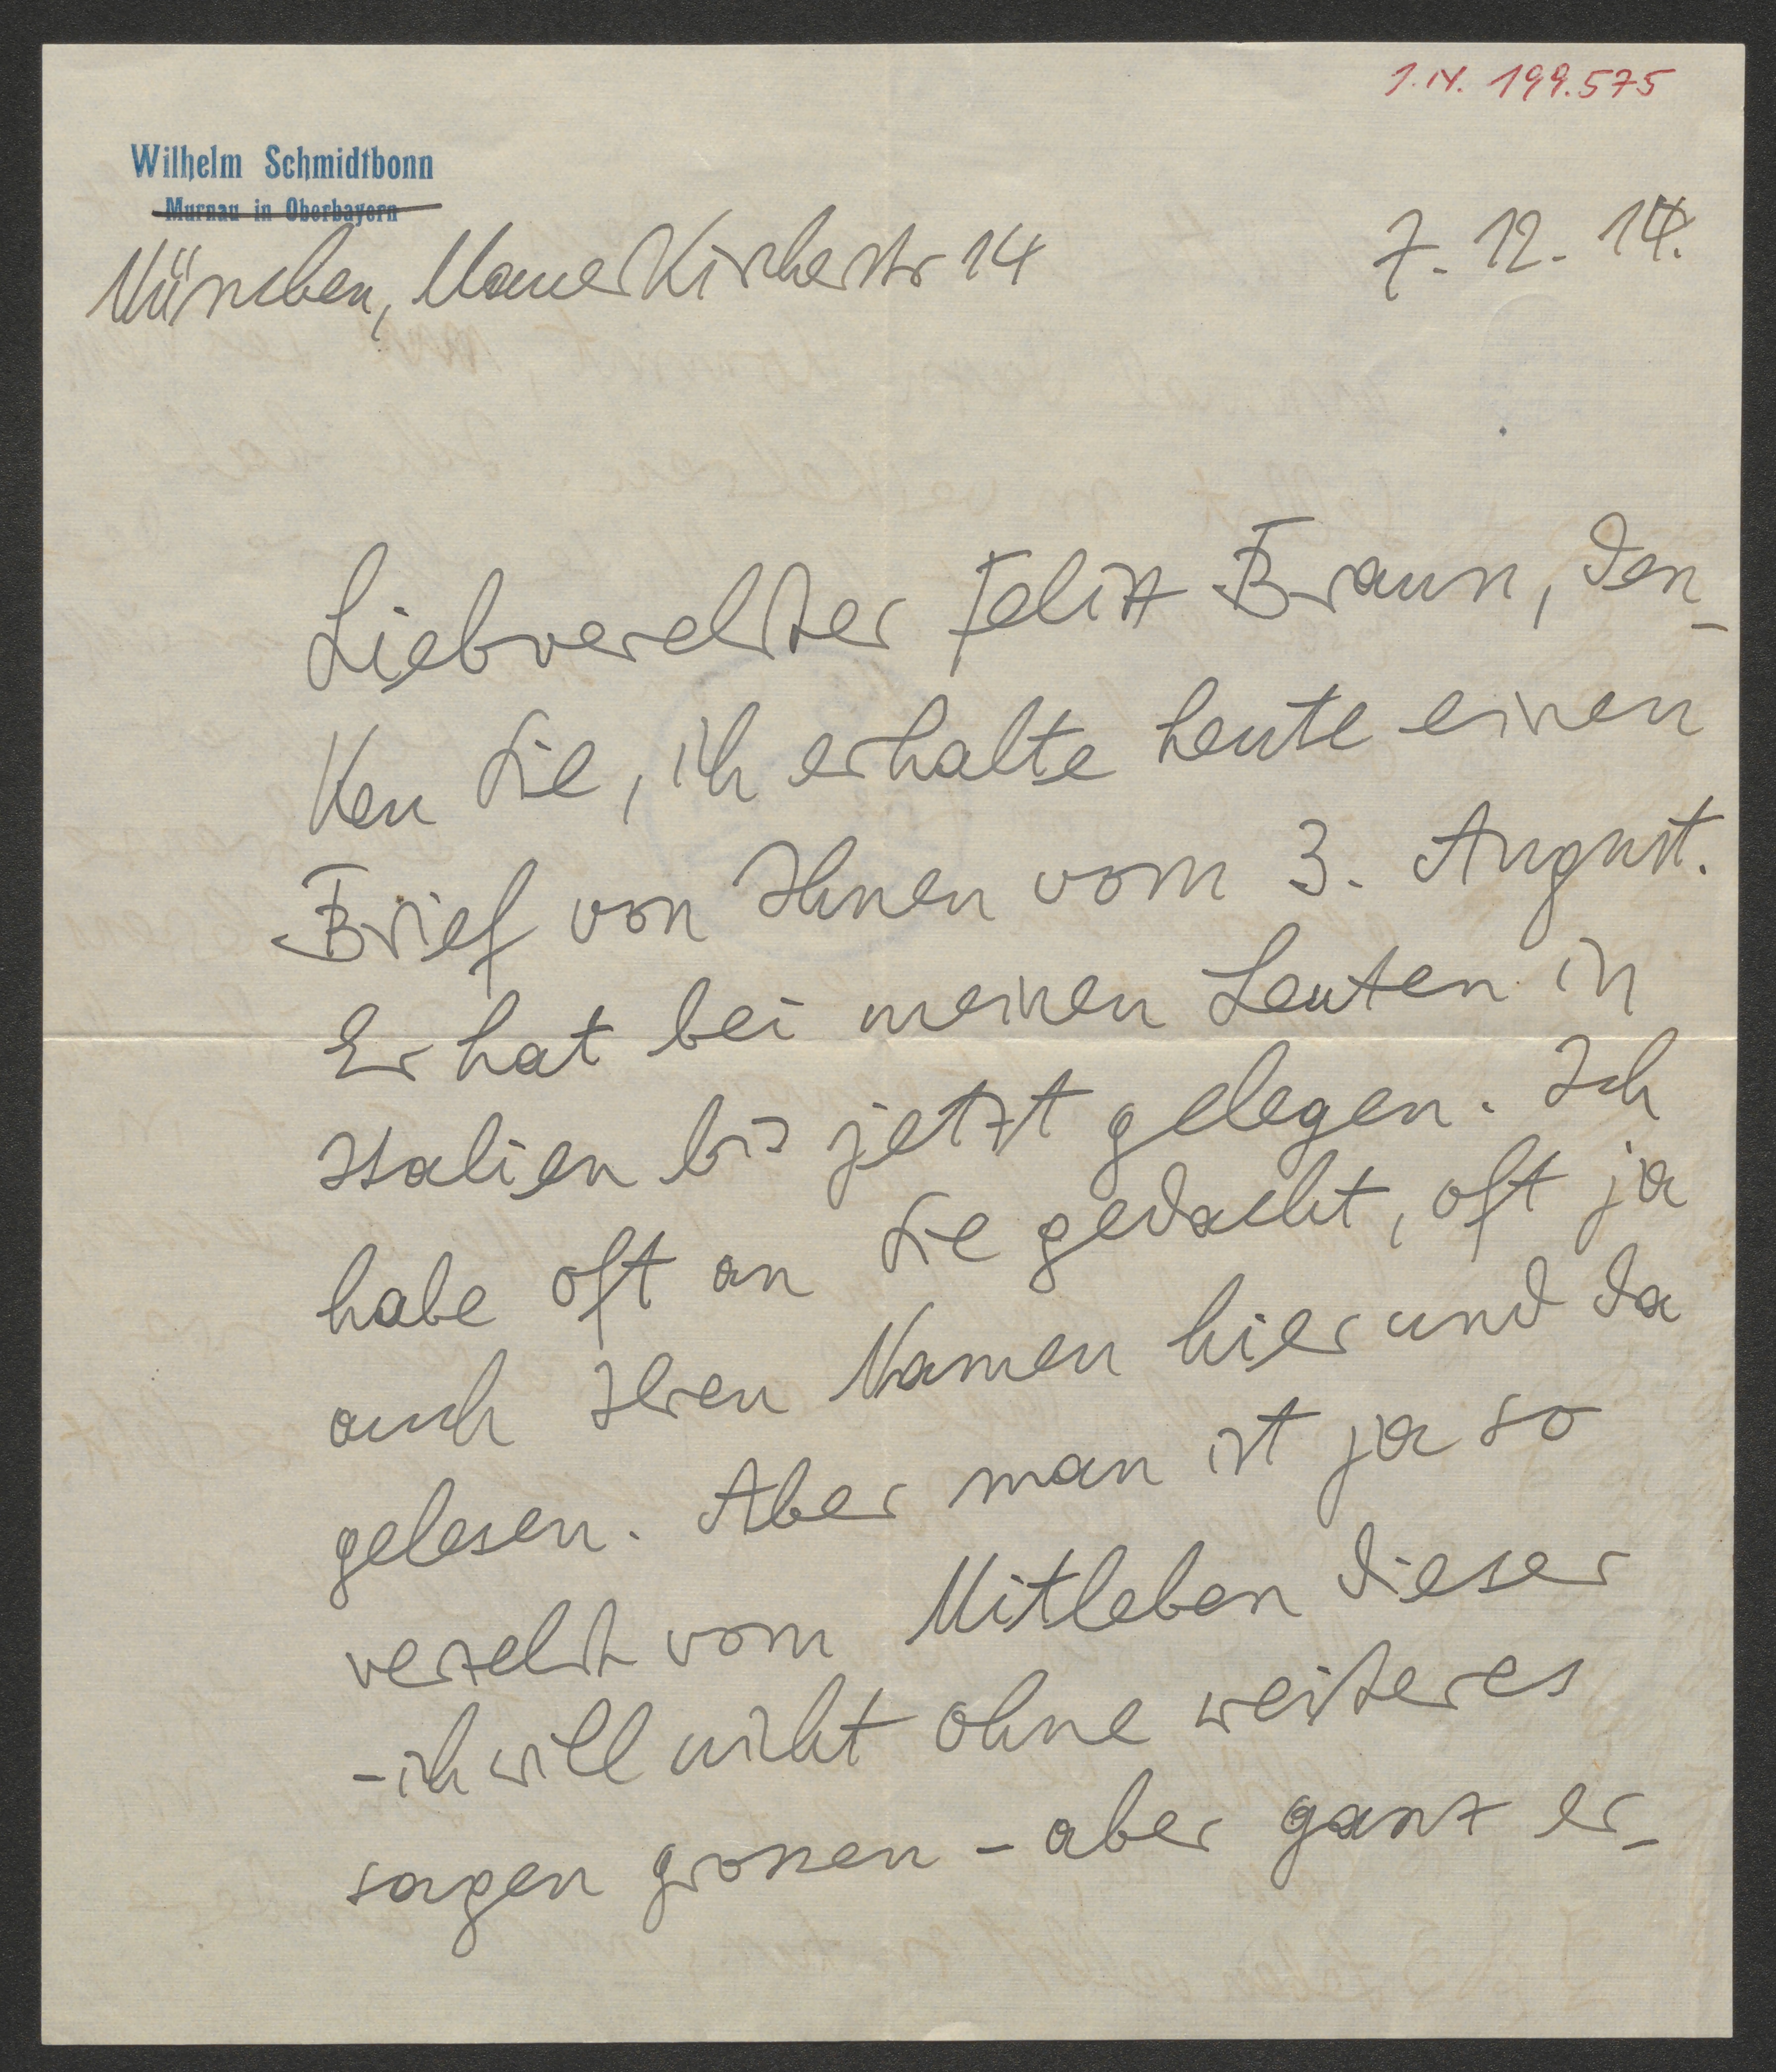 I.N. 199.575
Wilhelm Schmidtbonn
Murnau in Oberbayern
München, Mauerkircherstr 14
7. 12. 14.
Liebverehrter Felix Braun, den-
ken Sie, ich erhalte heute einen
Brief von Ihnen vom 3. August.
Er hat bei meinen Leuten in
Italien bis jetzt gelegen. Ich
habe oft an Sie gedacht, oft ja
auch Ihren Namen hier und da
gelesen. Aber man ist ja so
verzehrt vom Mitleben dieser
- ich will nicht ohne weiteres
sagen grossen - aber ganz er-